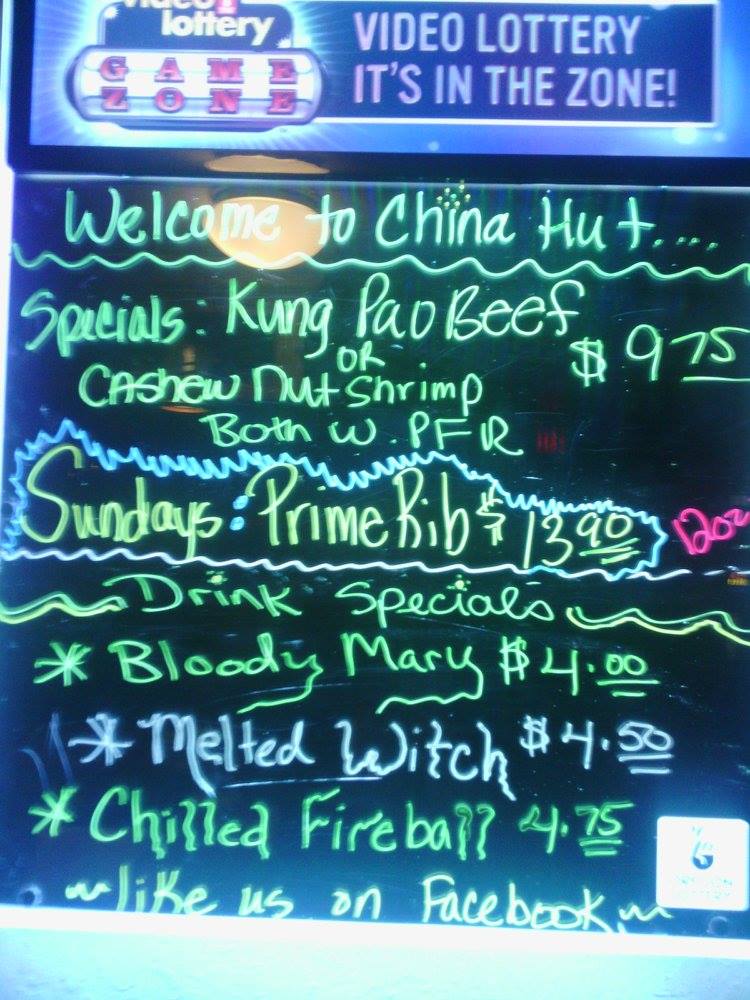 video lottery
GAME
ZONE
VIDEO LOTTERY
IT'S IN THE ZONE!
Welcome to China Hut....
Specials: Kung Pao Beef
OR
$ 9 75
Cashew Nut Shrimp
Both w. PFR
Sundays: Prime Rib $ 13 90 12oz
Drink Specials
* Bloody Mary $ 4.00
* Melted Witch $ 4.50
* Chilled Fireball 4.75
~like us on Facebook~